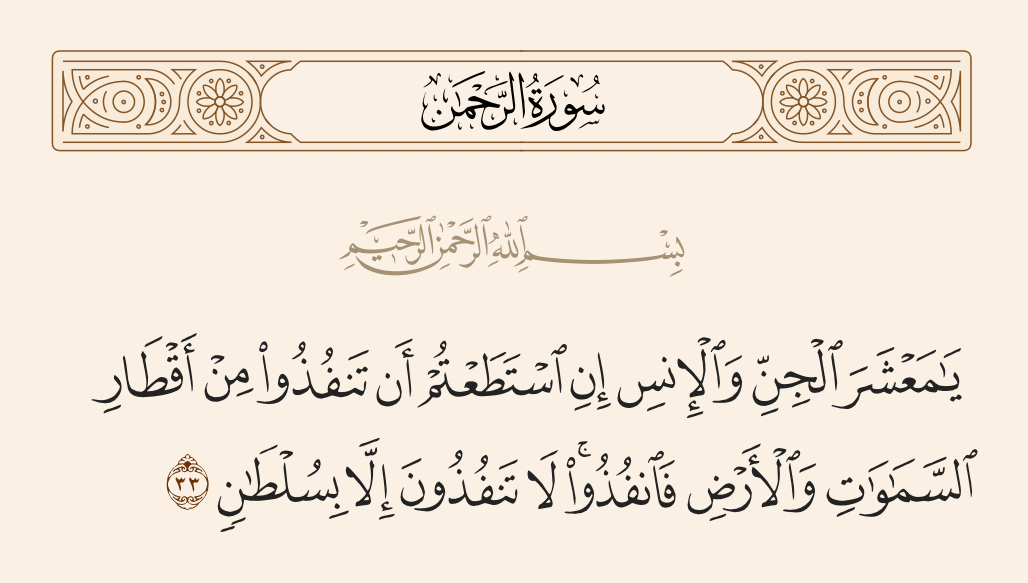 سُورَةُ الرَّحْمَٰن
بِسْمِ ٱللَّهِ ٱلرَّحْمَٰنِ ٱلرَّحِيمِ
يَٰمَعْشَرَ ٱلْجِنِّ وَٱلْإِنسِ إِنِ ٱسْتَطَعْتُمْ أَن تَنفُذُوا۟ مِنْ أَقْطَارِ
ٱلسَّمَٰوَٰتِ وَٱلْأَرْضِ فَٱنفُذُوا۟ ۚ لَا تَنفُذُونَ إِلَّا بِسُلْطَٰنٍ ٣٣